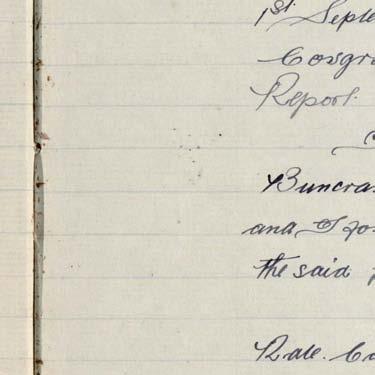 1st Septe
Cosgr
Report.
Buncra
and I
the said
Rate. Co